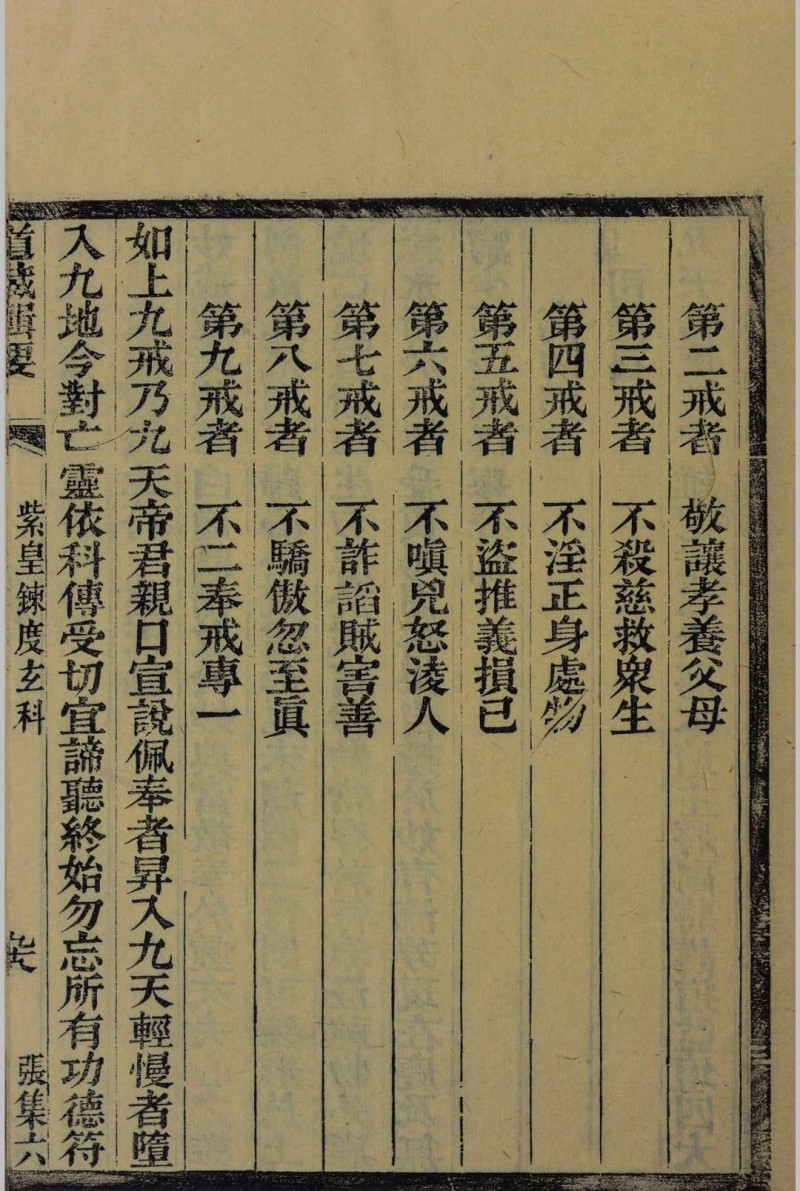 第二戒者　敬讓孝養父母
第三戒者　不殺慈救衆生
第四戒者　不淫正身處物
第五戒者　不盜推義損己
第六戒者　不嗔兇怒淩人
第七戒者　不詐謟賊害善
第八戒者　不驕傲忽至眞
第九戒者　不二奉戒專一
如上九戒乃九天帝君親口宣說佩奉者昇入九天輕慢者墮
入九地今對亡靈依科傳受切宜諦聽終始勿忘所有功德符
道藏輯要　紫皇鍊度玄科　張集六